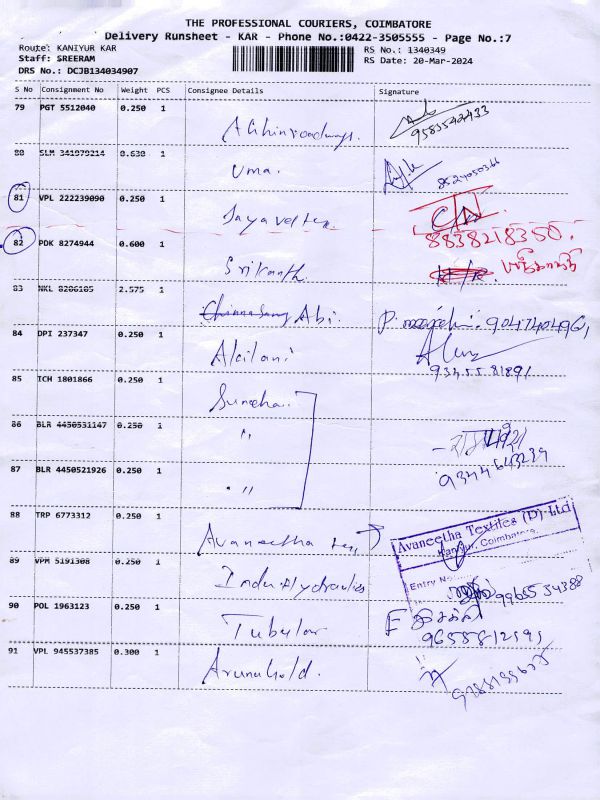 THE PROFESSIONAL COURIERS, COIMBATORE
Delivery Runsheet - KAR - Phone No.:0422-3505555 - Page No.:7
Route: KANIYUR KAR
RS No.: 1340349
Staff: SREERAM
RS Date: 20-Mar-2024
DRS No.: DCJB134034907
S No Consignment No Weight PCS Consignee Details Signature
79 PGT 5512040 0.250 1
9583542433
80 SLM 341979214 0.630 1 Uma.
8524050366
81 VPL 222239090 0.250 1 Jayavel tex
8838218350.
82 PDK 8274944 0.600 1 Srikanth
83 NKL 8206105 2.575 1 Abi.
84 DPI 237347 0.250 1 Akilani
85 ICH 1801866 0.250 1
86 BLR 4450531147 0.250 1 "
87 BLR 4450521926 0.250 1 "
9344643239
88 TRP 6773312 0.250 1 Avaneetha tex
Avaneetha Textiles (P) Ltd
Kaniyur, Coimbatore.
Entry No
89 VPM 5191308 0.250 1 Indu Hydraulics
9965534388
90 POL 1963123 0.250 1 Tubular
91 VPL 945537385 0.300 1